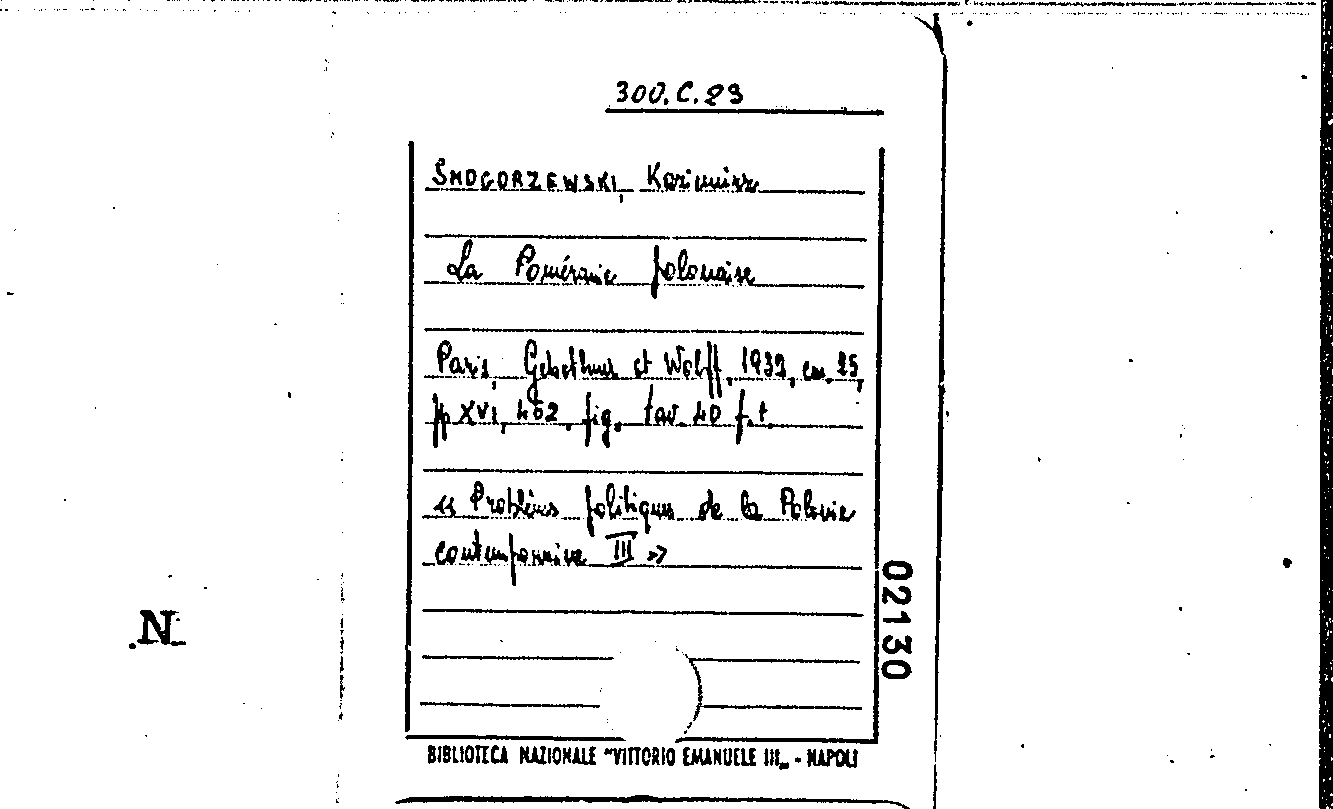 300.C.23
SMOGORZEWSKI, Kazimierz
La Poméranie polonaise
Paris, Gebethner et Wolff, 1932, cm. 25,
pp XVI, 462, fig. tav. 40 f.t.
« Problèmes politiques de la Pologne
contemporaine III »
02130
N
BIBLIOTECA NAZIONALE "VITTORIO EMANUELE III„ - NAPOLI